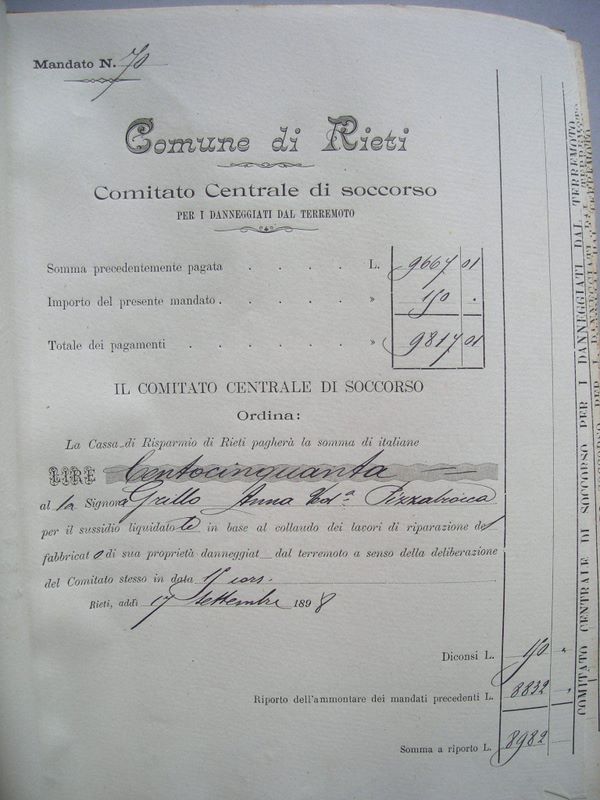 Mandato N. 70
Comune di Rieti
Comitato Centrale di soccorso
PER I DANNEGGIATI DAL TERREMOTO
Somma precedentemente pagata . . . . L. 9667 01
Importo del presente mandato . . . . » 150 .
Totale dei pagamenti . . . . . . » 9817 01
IL COMITATO CENTRALE DI SOCCORSO
Ordina:
La Cassa di Risparmio di Rieti pagherà la somma di italiane
LIRE Centocinquanta
al la Signora Grillo Anna Ved.a Pizzabiocca
per il sussidio liquidato le in base al collaudo dei lavori di riparazione del
fabbricato di sua proprietà danneggiat dal terremoto a senso della deliberazione
del Comitato stesso in data 17 cors.
Rieti, addì 17 Settembre 1898
Diconsi L. 150 "
Riporto dell'ammontare dei mandati precedenti L. 8832 "
Somma a riporto L. 8982
COMITATO CENTRALE DI SOCCORSO PER I DANNEGGIATI DAL TERREMOTO